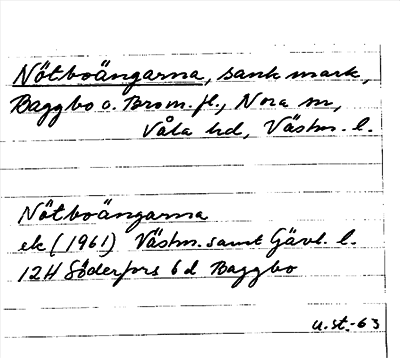 Nötboängarna, sank mark,
Baggbo o. Brom. fl., Nora sn,
Våla hd, Västm. l.
Nötboängarna
ek (1961) Västm. samt Gävl. l.
12H Söderfors 6d Baggbo
U.st.-63